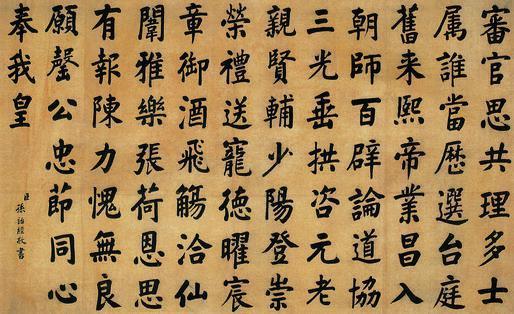 審官思共理多士
属誰當歷選台庭
舊来熙帝業昌入
朝師百辟論道協
三光垂拱咨元老
親賢輔少陽登崇
榮禮送寵徳曜宸
章御酒飛觴洽仙
闈雅樂張荷恩思
有報陳力愧無良
願罄公忠節同心
奉我皇
臣孫詒經敬書